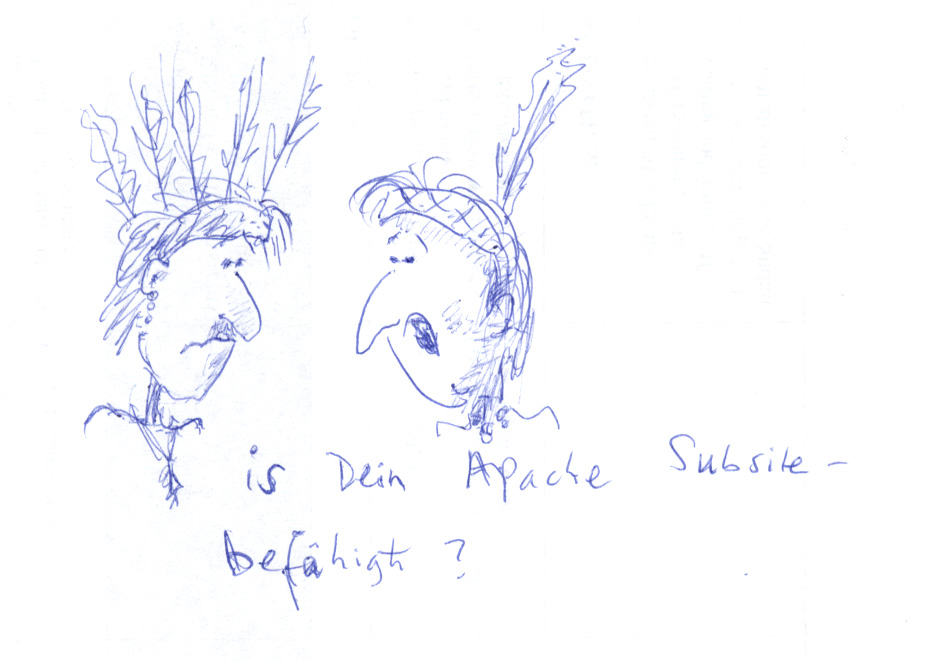 is Dein Apache Subsite-
befähigt ?